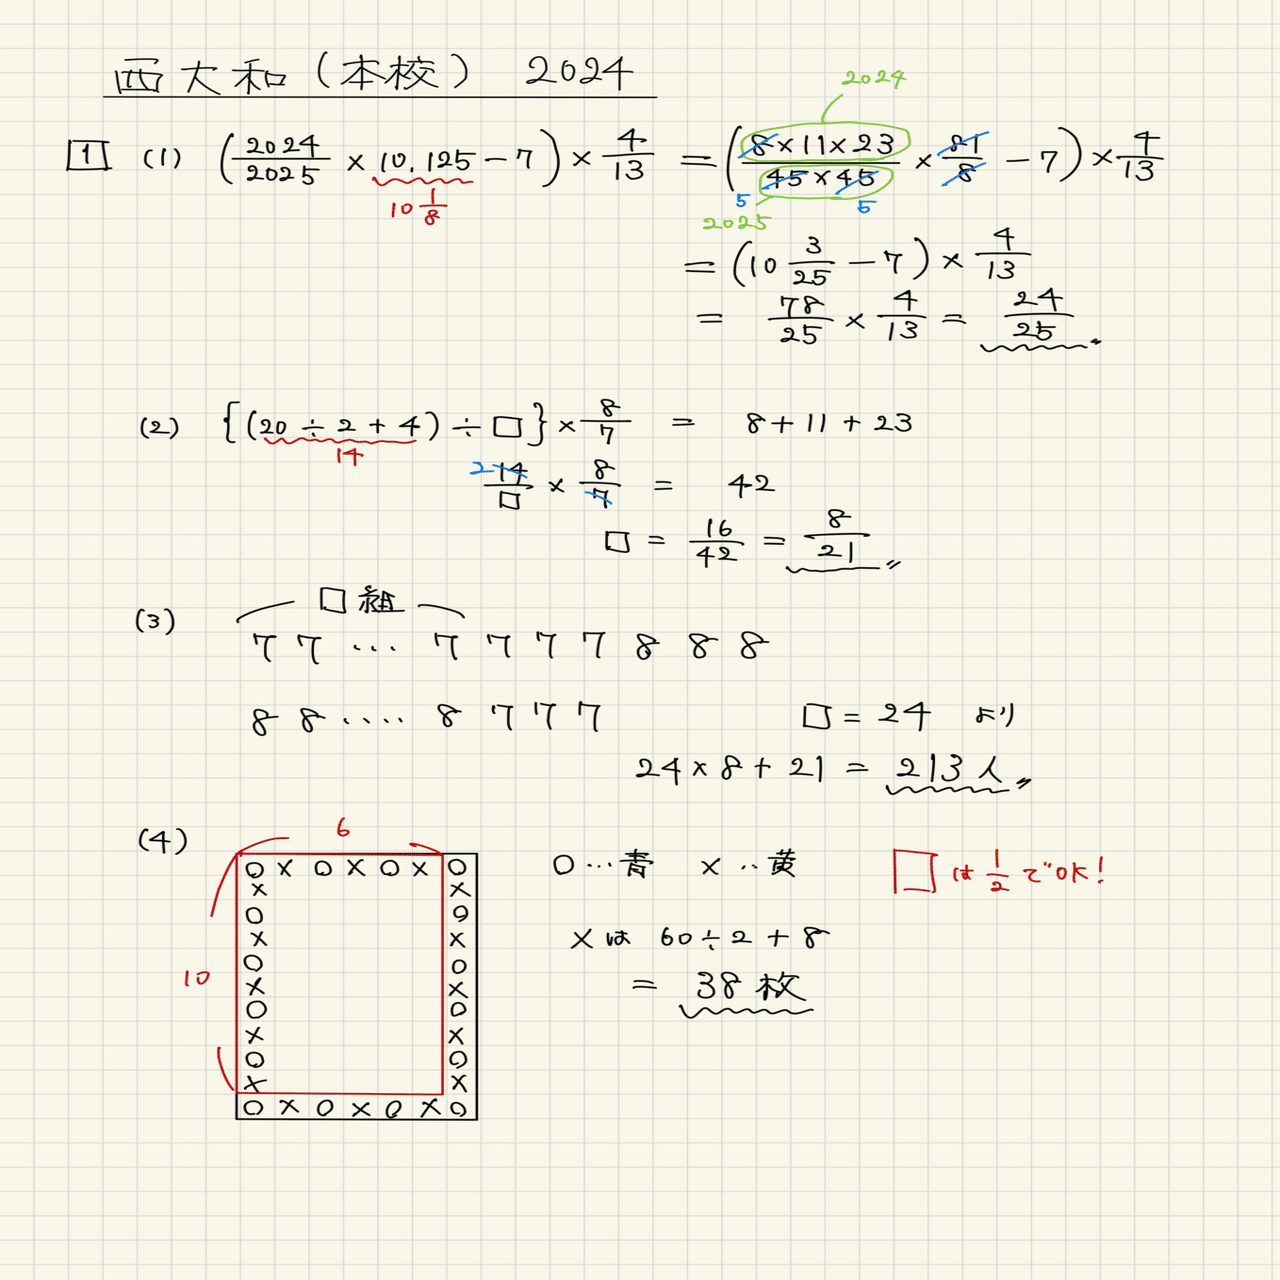 西大和(本校) 2024
2024
1 (1) (2024/2025 × 10.125 − 7) × 4/13 = (8×11×23/45×45 × 81/8 − 7) × 4/13
10 1/8
5 5
2025
= (10 3/25 − 7) × 4/13
= 78/25 × 4/13 = 24/25
(2) {(20 ÷ 2 + 4) ÷ □} × 8/7 = 8 + 11 + 23
14
2 14/□ × 8/7 = 42
□ = 16/42 = 8/21
(3) □組
7 7 … 7 7 7 7 8 8 8
8 8 ‥‥ 8 7 7 7 □ = 24 より
24 × 8 + 21 = 213人
(4) 6
○ × ○ × ○ × ○ ○…青 ×‥黄 □は 1/2 でOK!
× ×
○ ○
× × ×は 60÷2+8
○ ○
10 × × = 38枚
○ ○
× ×
○ ○
× ×
○ × ○ × ○ × ○